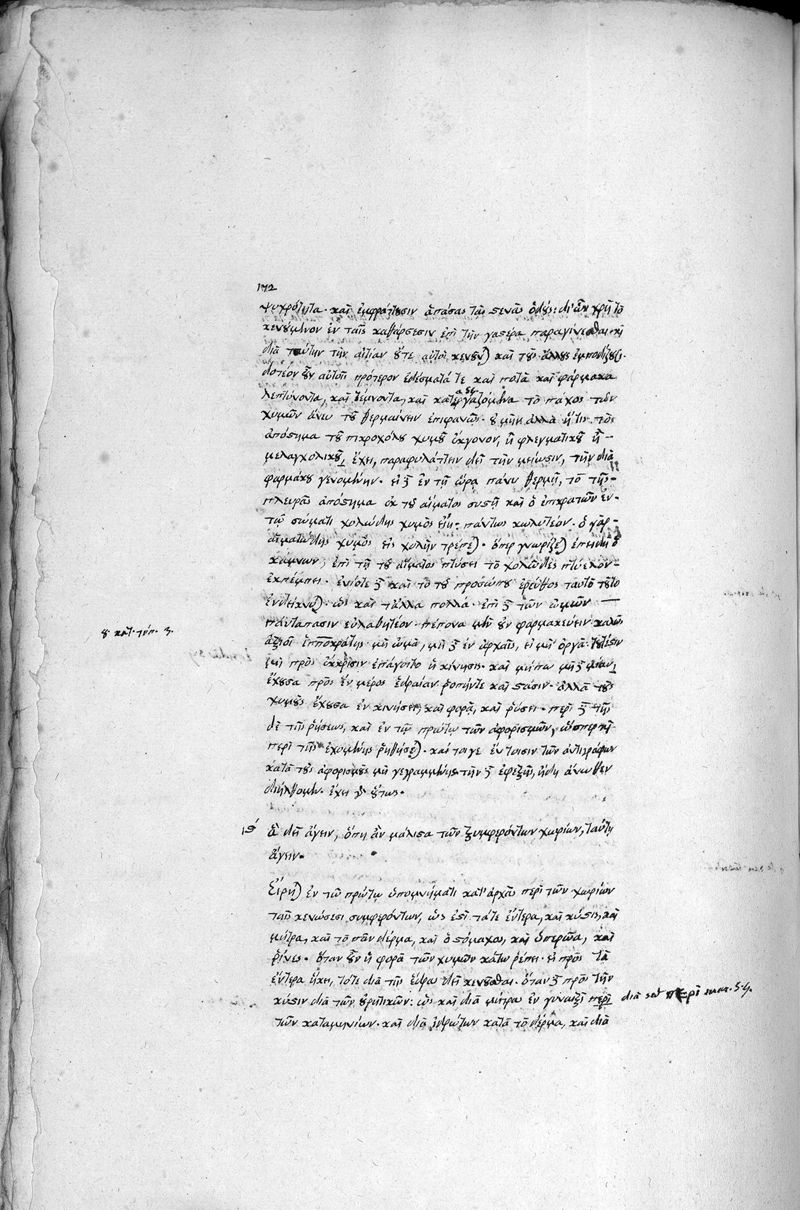 172
ψυχρότητα. καὶ ἐμφράττουσιν ἁπάσας τὰς στενὰς ὁδούς: δι' ὧν χρὴ τὸ
κενούμενον ἐν ταῖς καθάρσεσιν ἐπὶ τὴν γαστέρα παραγίνεσθαι. καὶ
διὰ ταύτην τὴν αἰτίαν οὔτε αὐτοὶ κενοῦνται καὶ τοὺς ἄλλους ἐμποδίζουσι.
δοτέον οὖν αὐτοῖς πρότερον ἐδέσματά τε καὶ ποτὰ καὶ φάρμακα
λεπτύνοντα, καὶ τέμνοντα, καὶ κατεργαζόμενα τὸ πάχος τῶν
χυμῶν ἄνευ τοῦ θερμαίνειν ἐπιφανῶς. οὐ μὴν ἀλλὰ εἴ τις πρὸς
ἀπόστημα τοῦ πικροχόλου χυμοῦ ἔκγονον, ἢ φλεγματικοῦ ἢ
μελαγχολικοῦ ἔχει, παραφυλάττειν δεῖ τὴν μείωσιν, τὴν διὰ
φαρμάκου γενομένην. εἰ δὲ ἐν τῇ ὥρᾳ πάνυ θερμῇ, τὸ τῆς
πλευρᾶς ἀπόστημα ἐκ τοῦ αἵματος συστῇ καὶ ὁ ἐπικρατῶν ἐν
τῷ σώματι χολώδης χυμὸς εἴη: πάντως κωλυτέον. ὁ γὰρ
αἱματώδης χυμὸς εἰς χολὴν τρέπεται. ὅπερ γνωρίζεται ἐπειδὴ ὁ
κάμνων, ἐπὶ τῇ τοῦ αἵματος πτύσει τὸ χολῶδες πτύελον
ἐκπέμπει. ἐνίοτε δὲ καὶ τὸ τοῦ προσώπου ἔρευθος ταυτὸ τοῦτο
ἐνδείκνυται. ὡς καὶ τἄλλα πολλά. ἐπὶ δὲ τῶν ὠμῶν
παντάπασιν εὐλαβητέον. πέπονα μὲν οὖν φαρμακεύειν καλῶς
ἀξιοῖ ἱπποκράτης μὴ ὠμὰ, μὴ δὲ ἐν ἀρχαῖς, εἰ μὴ ὀργᾷ. τουτέστιν
εἰ μὴ πρὸς ἔκκρισιν ἐπάγοιτο ἡ κίνησις. καὶ μήπω μὴ δὲ μίαν
ἔχουσα πρὸς ἓν μέρος ἑδραίαν ῥοπήν τε καὶ στάσιν. ἀλλὰ τοὺς
χυμοὺς ἔχουσα ἐν κινήσει, καὶ φορᾷ, καὶ ῥύσει. περὶ δὲ τῆσ
δε τῆς ῥήσεως, καὶ ἐν τῷ πρώτῳ τῶν ἀφορισμῶν, ὥσπερ καὶ
περὶ τῆς ἐχομένης ῥηθήσεται. καὶ τοί γε ἔν τισιν τῶν ἀντιγράφων
κατὰ τοὺς ἀφορισμοὺς μὴ γεγραμμένης. τὴν δὲ ἐφεξῆς, ἤδη ἄνωθεν
διήλθομεν. ἔχει δὲ οὕτως.
ιθ ἃ δεῖ ἄγειν, ὅπῃ ἂν μάλιστα τῶν ξυμφερόντων χωρίων, ταύτῃ
ἄγειν.
Εἴρηται ἐν τῷ πρώτῳ ὑπομνήματι κατ' ἀρχὰς περὶ τῶν χωρίων
ταῖς κενώσεσι συμφερόντων, ὡς ἐστὶ τά τε ἔντερα, καὶ κύστις, καὶ
μήτρα, καὶ τὸ πᾶν δέρμα, καὶ ὁ στόμαχος, καὶ ὑπερῴα, καὶ
ῥῖνες. ὅταν οὖν ἡ φορὰ τῶν χυμῶν κάτω ῥέπει. εἰ πρὸς τὰ
ἔντερα ἥκει, τότε διὰ τὴν ἕδραν δεῖ κενοῦσθαι. ὅταν δὲ πρὸς τὴν
κύστιν διὰ τῶν οὐρητικῶν: ὡς καὶ διὰ μήτρας ἐν γυναιξὶ περὶ
τῶν καταμηνίων. καὶ διὰ ἱδρώτων κατὰ τὸ δέρμα, καὶ διὰ